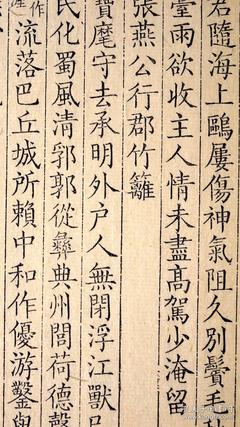 君隨海上鷗屢傷神氣阻久別鬢毛
臺雨欲收主人情未盡高駕少淹留
張燕公行郡竹籬
寶麾守去承明外戶人無閉浮江獸
民化蜀風清郛郭從彝典州閭荷德聲
作流落巴丘城所賴中和作優游鑿與